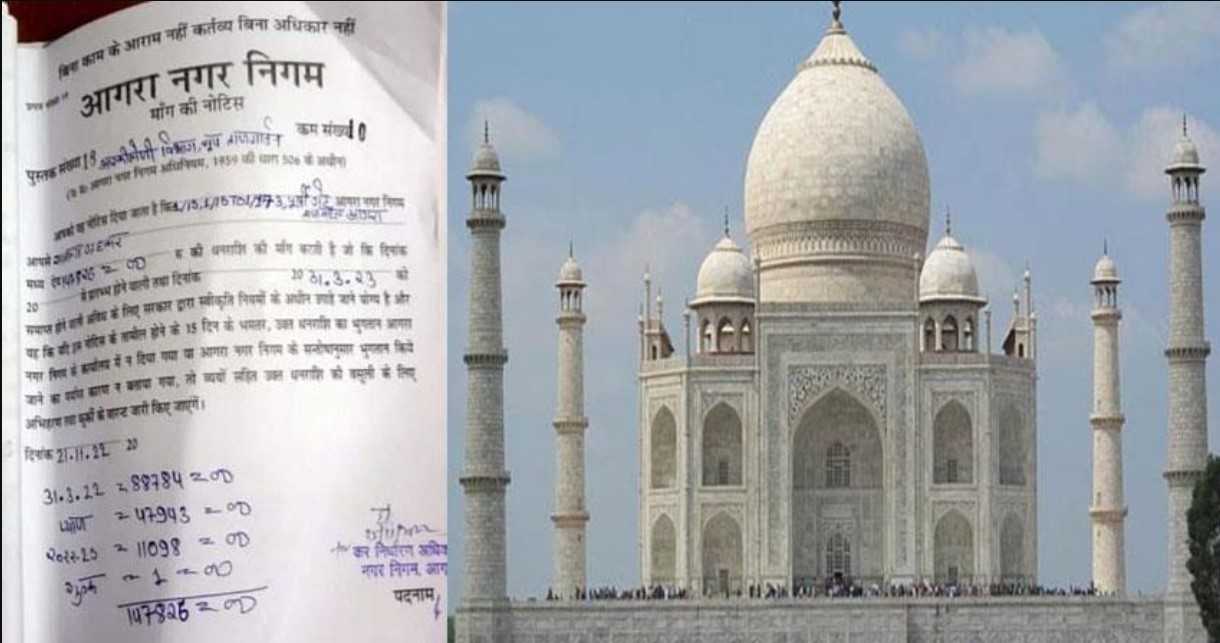 बिना काम के आराम नहीं कर्तव्य बिना अधिकार नहीं
आगरा नगर निगम
माँग की नोटिस
पुस्तक संख्या 18 क्रम संख्या 10
आगरा नगर निगम अधिनियम, 1959 की धारा 506 के अधीन)
आपको यह नोटिस दिया जाता है कि आगरा नगर निगम
आपसे रु की धनराशि की माँग करती है जो कि दिनांक
20 से प्रारम्भ होने वाली तथा दिनांक 20 31.3.23 को
समाप्त होने वाली अवधि के लिए सरकार द्वारा स्वीकृति नियमों के अधीन उगाहे जाने योग्य है और
यह कि यदि इस नोटिस के तामील होने के 15 दिन के भीतर, उक्त धनराशि का भुगतान आगरा
नगर निगम के कार्यालय में न दिया गया या आगरा नगर निगम के सन्तोषानुसार भुगतान किये
जाने का पर्याप्त कारण न बताया गया, तो व्ययों सहित उक्त धनराशि की वसूली के लिए
अभिहरण तथा कुर्की के वारन्ट जारी किए जाएगें।
दिनांक 21.11.22 20
31.3.22 = 88784 = 00
ब्याज = 47943 = 00
2022-23 = 11098 = 00
शुल्क = 1 = 00
147826 = 00
कर निर्धारण अधिक
नगर निगम, आग
पदनाम